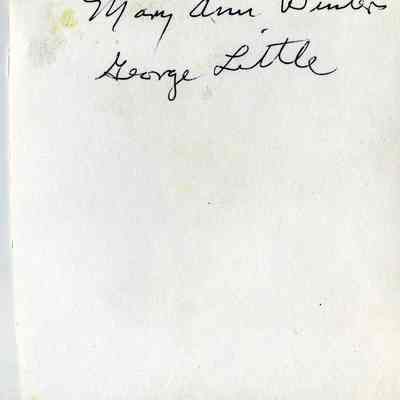 Mary Ann Winters
George Little